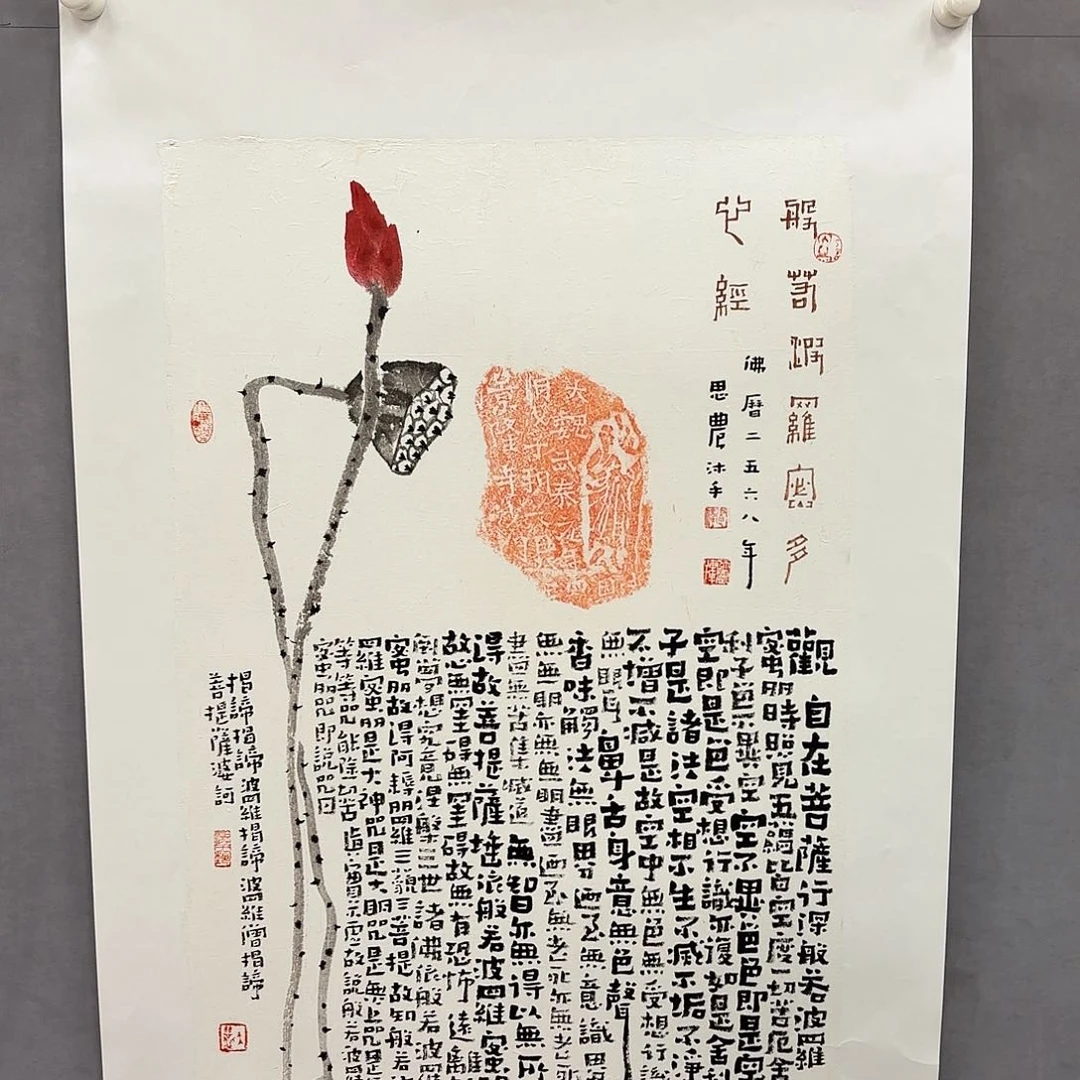 般若波羅蜜多
心經
佛曆二五六八年
思農沐手
觀自在菩薩行深般若波羅
蜜多時照見五緼皆空度一切苦厄舍
利子色不異空空不異色色即是空
空即是色受想行識亦復如是舍利
子是諸法空相不生不滅不垢不淨
不增不減是故空中無色無受想行識
無眼耳鼻舌身意無色聲
香味觸法無眼界乃至無意識界
無無明亦無無明盡乃至無老死亦無老死
盡無苦集滅道無智亦無得以無所
得故菩提薩埵依般若波羅蜜
故心無罣碍無罣碍故無有恐怖遠離
倒夢想究竟涅槃三世諸佛依般若波羅
蜜多故得阿耨多羅三藐三菩提故知般若
羅蜜多是大神咒是大明咒是無上咒是
等等咒能除一切苦真實不虛故說般若波羅
蜜多咒即說咒曰
揭諦揭諦波羅揭諦波羅僧揭諦
菩提薩婆訶